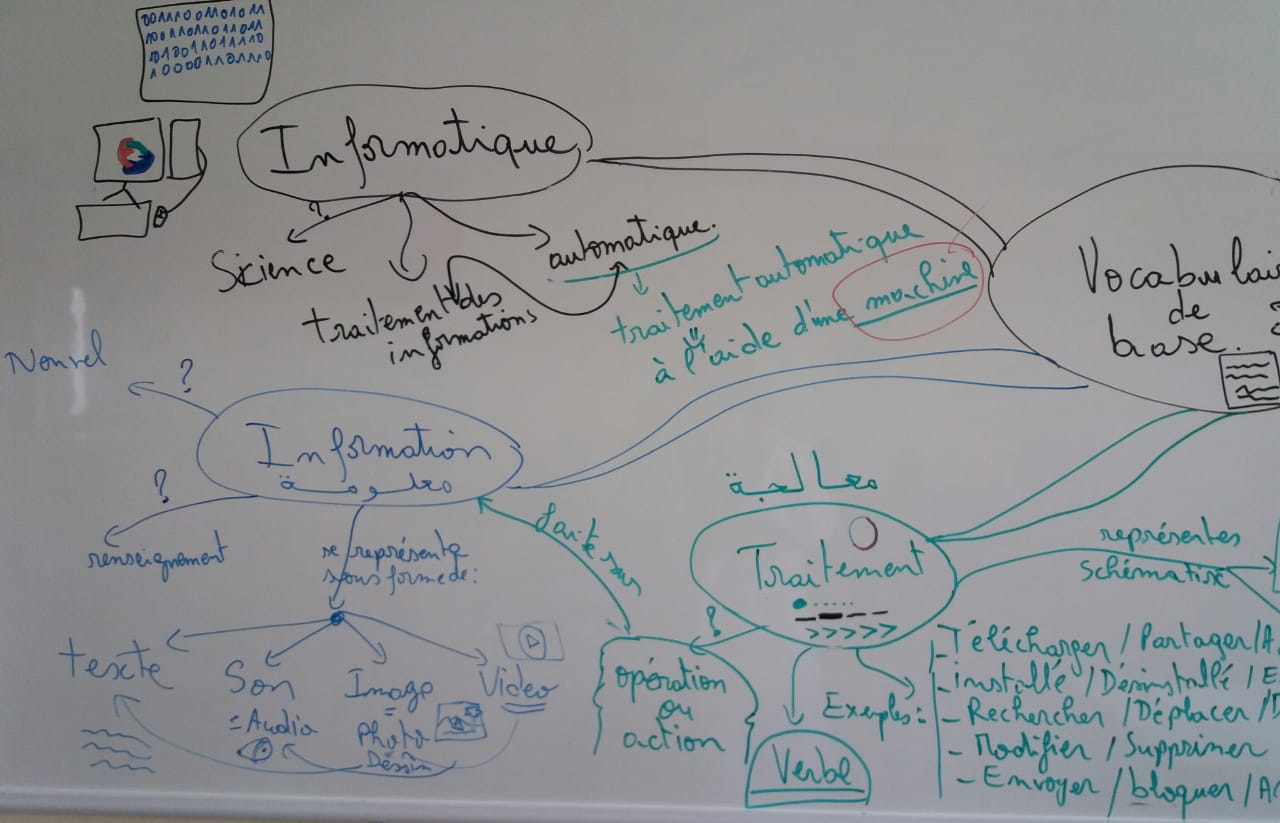 Informatique
?
Science
traitement des
informations
automatique.
traitement automatique
à l'aide d'une machine
Vocabulai
de
base.
Nouvel
?
Information
معلومة
?
renseignement
se représente
sous forme de:
texte
Son
= Audio
Image
=
Photo
Dessin
Video
faite sur
معالجة
Traitement
>>>>>
?
opération
ou
action
Verbe
Exemples:
représentes
schématisé
- Télécharger / Partager / A
- installé / Désinstallé / E
- Rechercher / Déplacer / D
- Modifier / Supprimer
- Envoyer / bloquer / AC